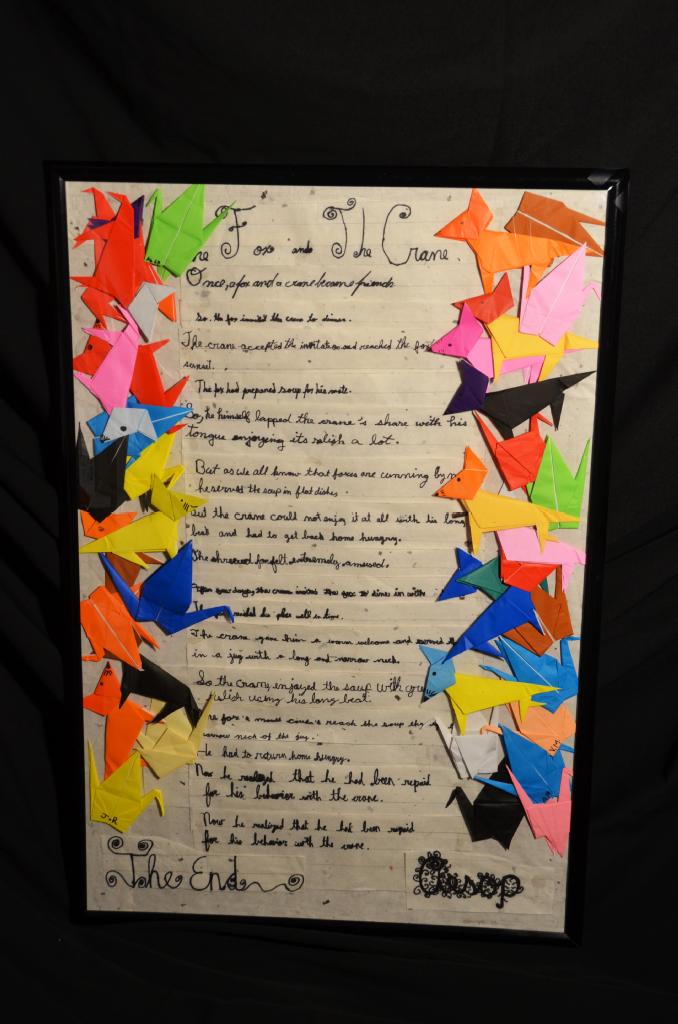 The Fox and The Crane.
Once, a fox and a crane became friends
So, the fox invited the crane to dinner.
The crane accepted the invitation and reached the fox
sunset.
The fox had prepared soup for his mate.
So, he himself lapped the crane's share with his
tongue enjoying its relish a lot.
But as we all know that foxes are cunning by n
he served the soup in flat dishes.
But the crane could not enjoy it at all with his long
beak and had to get back home hungry.
The shrewd fox felt extremely amused.
After few days, the crane invited the fox to dine in with
The fox reached his place well in time.
The crane gave him a warm welcome and served th
in a jug with a long and narrow neck.
So the crane enjoyed the soup with gre
relish using his long beak.
he fox's mouth couldn't reach the soup th
narrow neck of the jug.
He had to return home hungry.
Now he realized that he had been repaid
for his behavior with the crane.
Now he realized that he had been repaid
for his behavior with the crane.
The End
Aesop
J+R